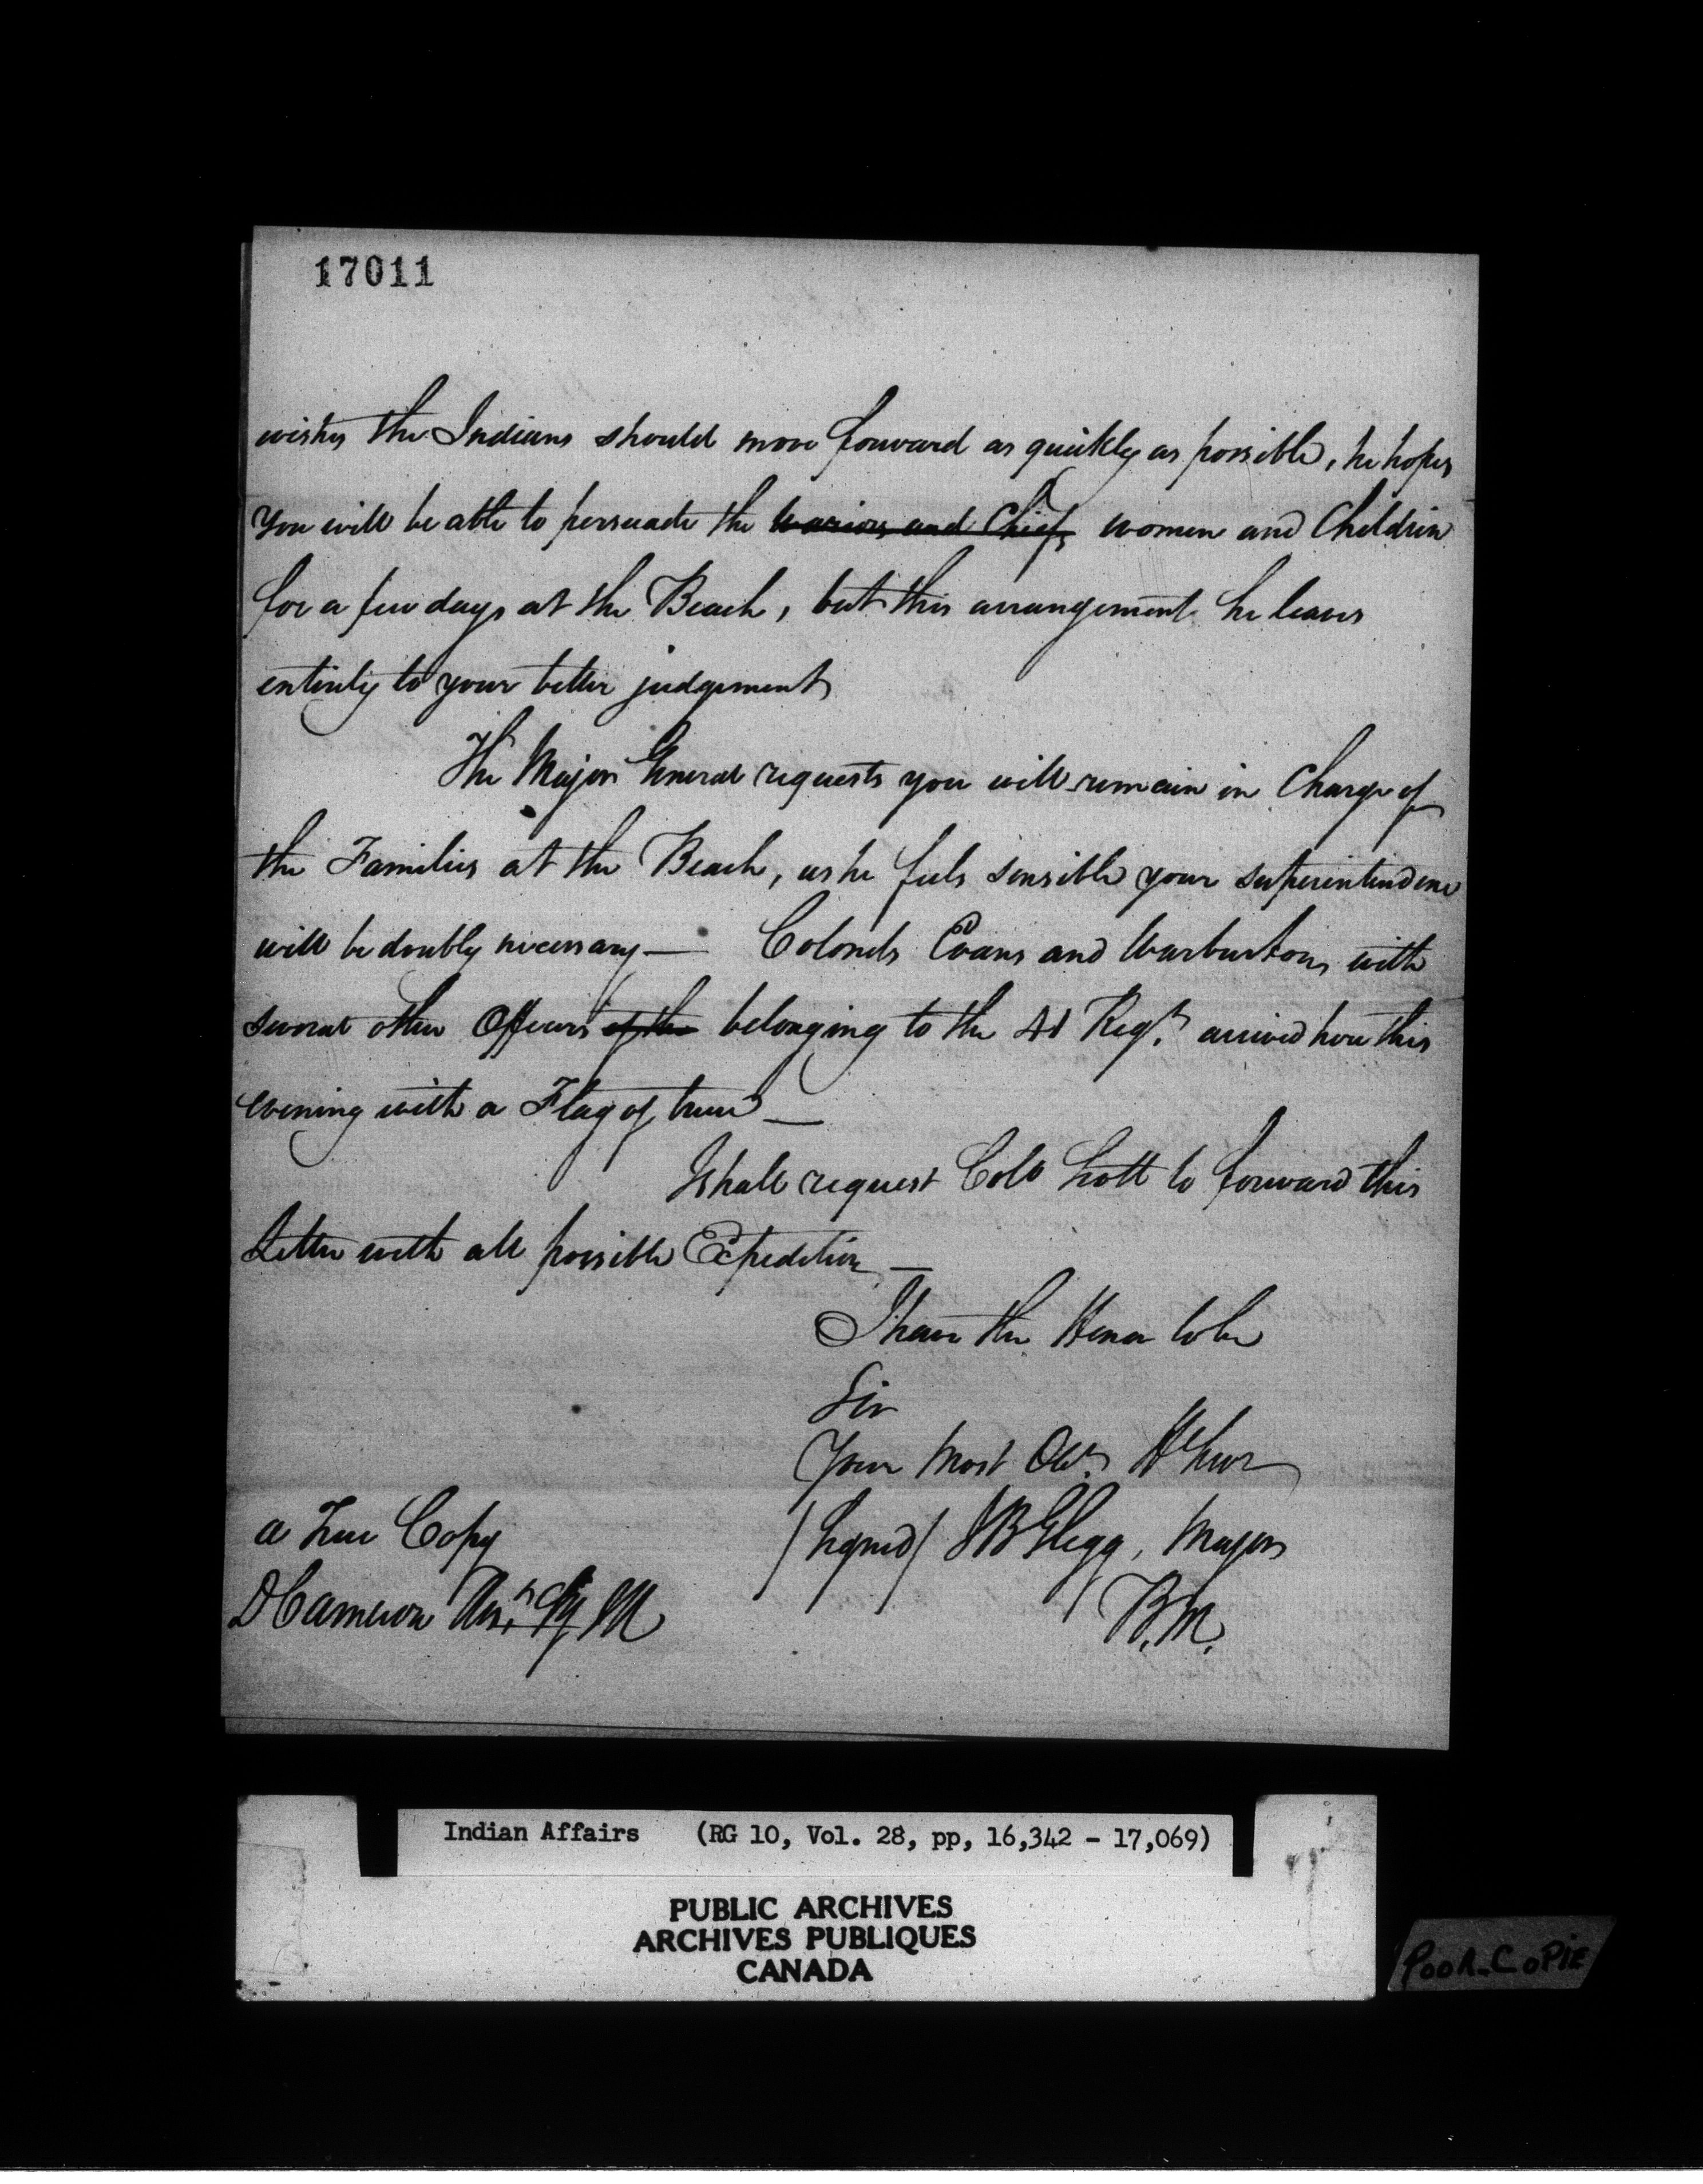 17011
wishes the Indians should move forward as quickly as possible, he hopes
you will be able to persuade the Warriors and Chiefs women and Children
for a few days at the Beach, but this arrangement he leaves
entirely to your better judgement
The Major General requests you will remain in Charge of
the Families at the Beach, as he feels sensible your superintendence
will be doubly necessary — Colonels Evans and Warburton, with
several other Officers of the belonging to the 41 Regt. arrived here this
evening with a Flag of truce —
I shall request Colo Scott to forward this
Letter with all possible Expedition —
I have the Honor to be
Sir
Your Most Obt. H Ser
/Signed/ J B Glegg, Major
B. M.
a True Copy
D Cameron
Indian Affairs (RG 10, Vol. 28, pp, 16,342 - 17,069)
PUBLIC ARCHIVES
ARCHIVES PUBLIQUES
CANADA
POOR COPIE